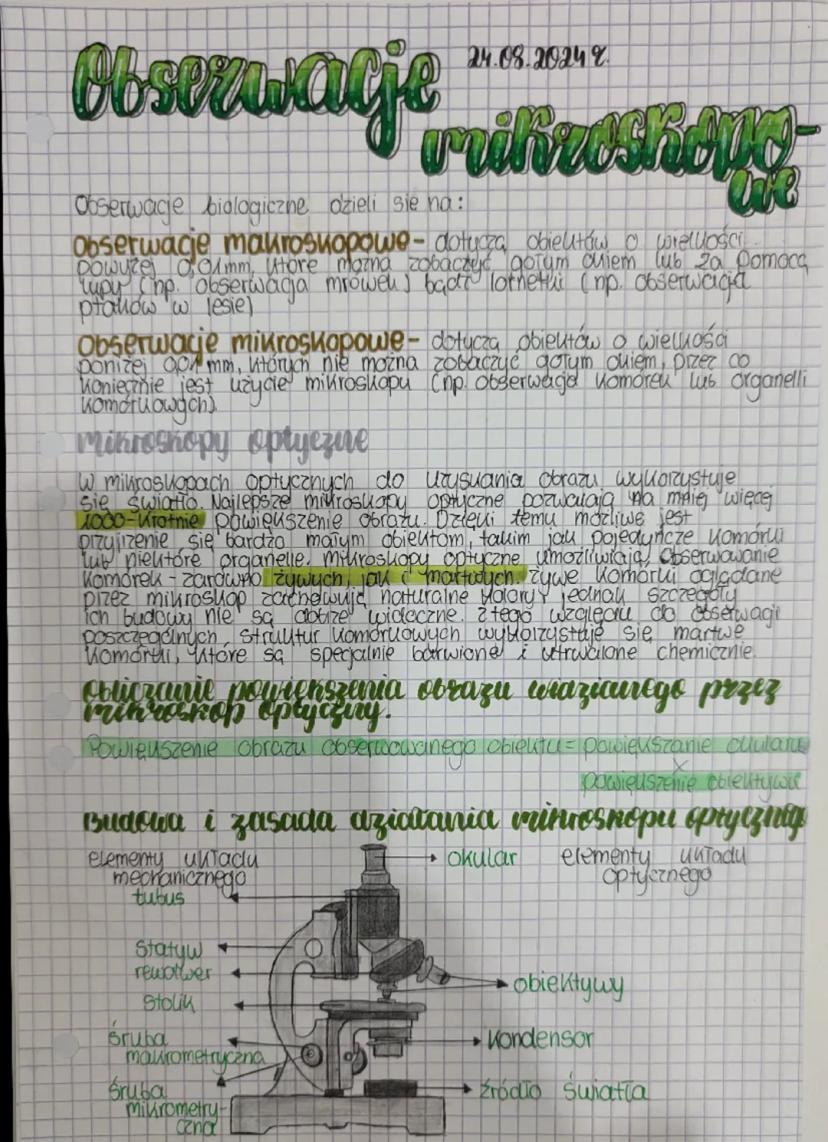 Obserwacje 24.08.2024r.
mikroskopo-
we
Obserwacje biologiczne dzieli się na:
Obserwacje makroskopowe - dotyczą obiektów o wielkości
powyżej 0,01mm, które można zobaczyć gołym okiem lub za pomocą
lupy (np. obserwacja mrówek) bądź lornetki (np. obserwacja
ptaków w lesie)
Obserwacje mikroskopowe - dotyczą obiektów o wielkości
poniżej 0,01 mm, których nie można zobaczyć gołym okiem, przez co
koniecznie jest użycie mikroskopu (np. obserwacja komórek lub organelli
komórkowych).
mikroskopy optyczne
W mikroskopach optycznych do uzyskania obrazu wykorzystuje
się światło. Najlepsze mikroskopy optyczne pozwalają na mniej więcej
1000-krotnie powiększenie obrazu. Dzięki temu możliwe jest
przyjrzenie się bardzo małym obiektom, takim jak pojedyncze komórki
lub niektóre organelle. Mikroskopy optyczne umożliwiają obserwowanie
komórek - zarówno żywych, jak i martwych. żywe komórki oglądane
przez mikroskop zachowują naturalne kolory, jednak szczegóły
ich budowy nie są dobrze widoczne. z tego względu do obserwacji
poszczególnych struktur komórkowych wykorzystuje się martwe
komórki, które są specjalnie barwione i utrwalone chemicznie.
obliczanie powiększenia obrazu widzianego przez
mikroskop optyczny.
Powiększenie obrazu obserwowanego obiektu = powiększanie okularu
x
powiększenie obiektywu
Budowa i zasada działania mikroskopu optycznego
elementy układu okular elementy układu
mechanicznego optycznego
tubus
statyw
rewolwer
obiektywy
stolik
śruba kondensor
makrometryczna
śruba źródło światła
mikrometry-
czna